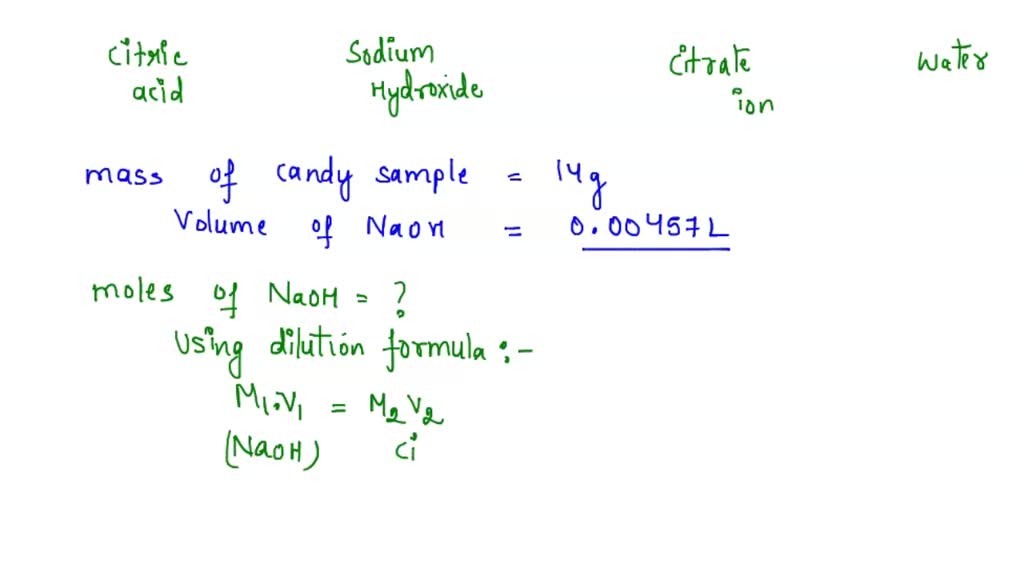 Citric Sodium Citrate Water
acid Hydroxide ion
mass of candy sample = 14g
Volume of NaOH = 0.00457L
moles of NaOH = ?
Using dilution formula :-
M1.V1 = M2V2
(NaOH) Ci